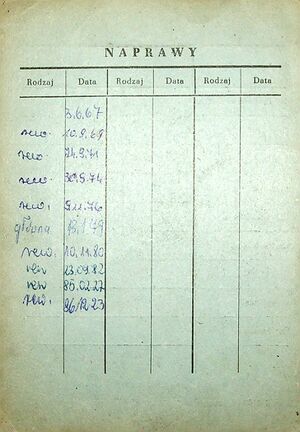 NAPRAWY
Rodzaj Data Rodzaj Data Rodzaj Data
3.6.67
rew. 10.9.69
rew. 24.9.71
rew. 30.9.74
rew. 5.11.76
główna
rew. 10.11.80
rew 23.09.82
rew 85.02.27
rew. 86/12 23